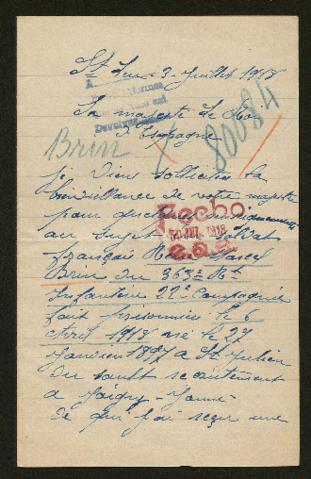 St 3 Juillet 1918
Sa majesté Le Roi
D'Espagne
Brin
80084
je viens solliciter la
bienveillance de votre majesté
pour quelques
au sujet soldat
français Marcel
Brin du 363e Rt
Infanterie 22e Compagnie
fait prisonnier le 6
Avril 1918 né le 27
Janvier 1897 a St Julien
du Sault recrutement
a Joigny - Yonne -
de qui j'ai reçu une
Fecho
1918